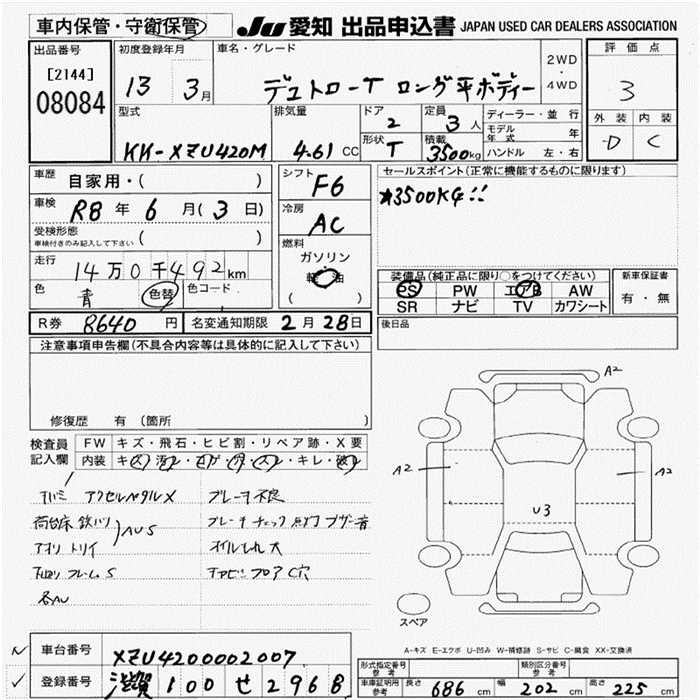 車内保管・守衛保管
JU 愛知 出品申込書 JAPAN USED CAR DEALERS ASSOCIATION
出品番号
[2144]
08084
初度登録年月
13 3月
車名・グレード
デュトローT ロング平ボディー
2WD
・
4WD
評価点
3
型式
KK-XZU420M
排気量
4.61 CC
ドア
2
定員
3人
形状
T
積載
3500kg
ディーラー・並行
モデル年式 年
ハンドル 左・右
外装 内装
D C
車歴 自家用・( )
車検 R8年6月(3日)
受検形態
車検付きのみ記入して下さい ( )
走行
14万0千492km
色 青 色替 色コード
シフト
F6
冷房
AC
燃料
ガソリン
軽油
( )
セールスポイント(正常に機能するものに限ります)
*3500KG!!
装備品(純正品に限り○をつけてください)
PS PW エアB AW
SR ナビ TV カワシート
新車保証書
有・無
R券 8640円 名変通知期限 2月28日
後日品
注意事項申告欄(不具合内容等は具体的に記入して下さい)
修復歴 有 (箇所 )
検査員
記入欄
FW キズ・飛石・ヒビ割・リペア跡・X要
内装
アクセルペタルX
ブレーキ不良
荷台床 鉄ハリ
AUS
ブレーキチェック点灯 ブザー音
アオリ トリイ
オイルもれ大
フレームS
フロアC穴
各AU
A2
A2
A2
U3
スペア
A-キズ E-エクボ U-凹み W-補修跡 S-サビ C-腐食 XX-交換済
車台番号 XZU4200002007
登録番号 滋賀 100 せ 2968
形式指定番号
参考
類別区分番号
参考
車庫証明用
参考
長さ 686 cm 幅 202 cm 高さ 225 cm